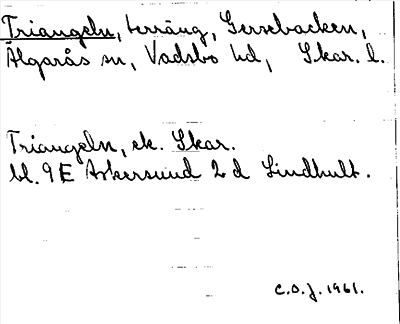 Triangeln, terräng, Gersebacken,
Älgarås sn, Vadsbo hd, Skar. l.
Triangeln, ek. Skar.
bl. 9E Askersund 2d Lindhult.
C.O.J. 1961.